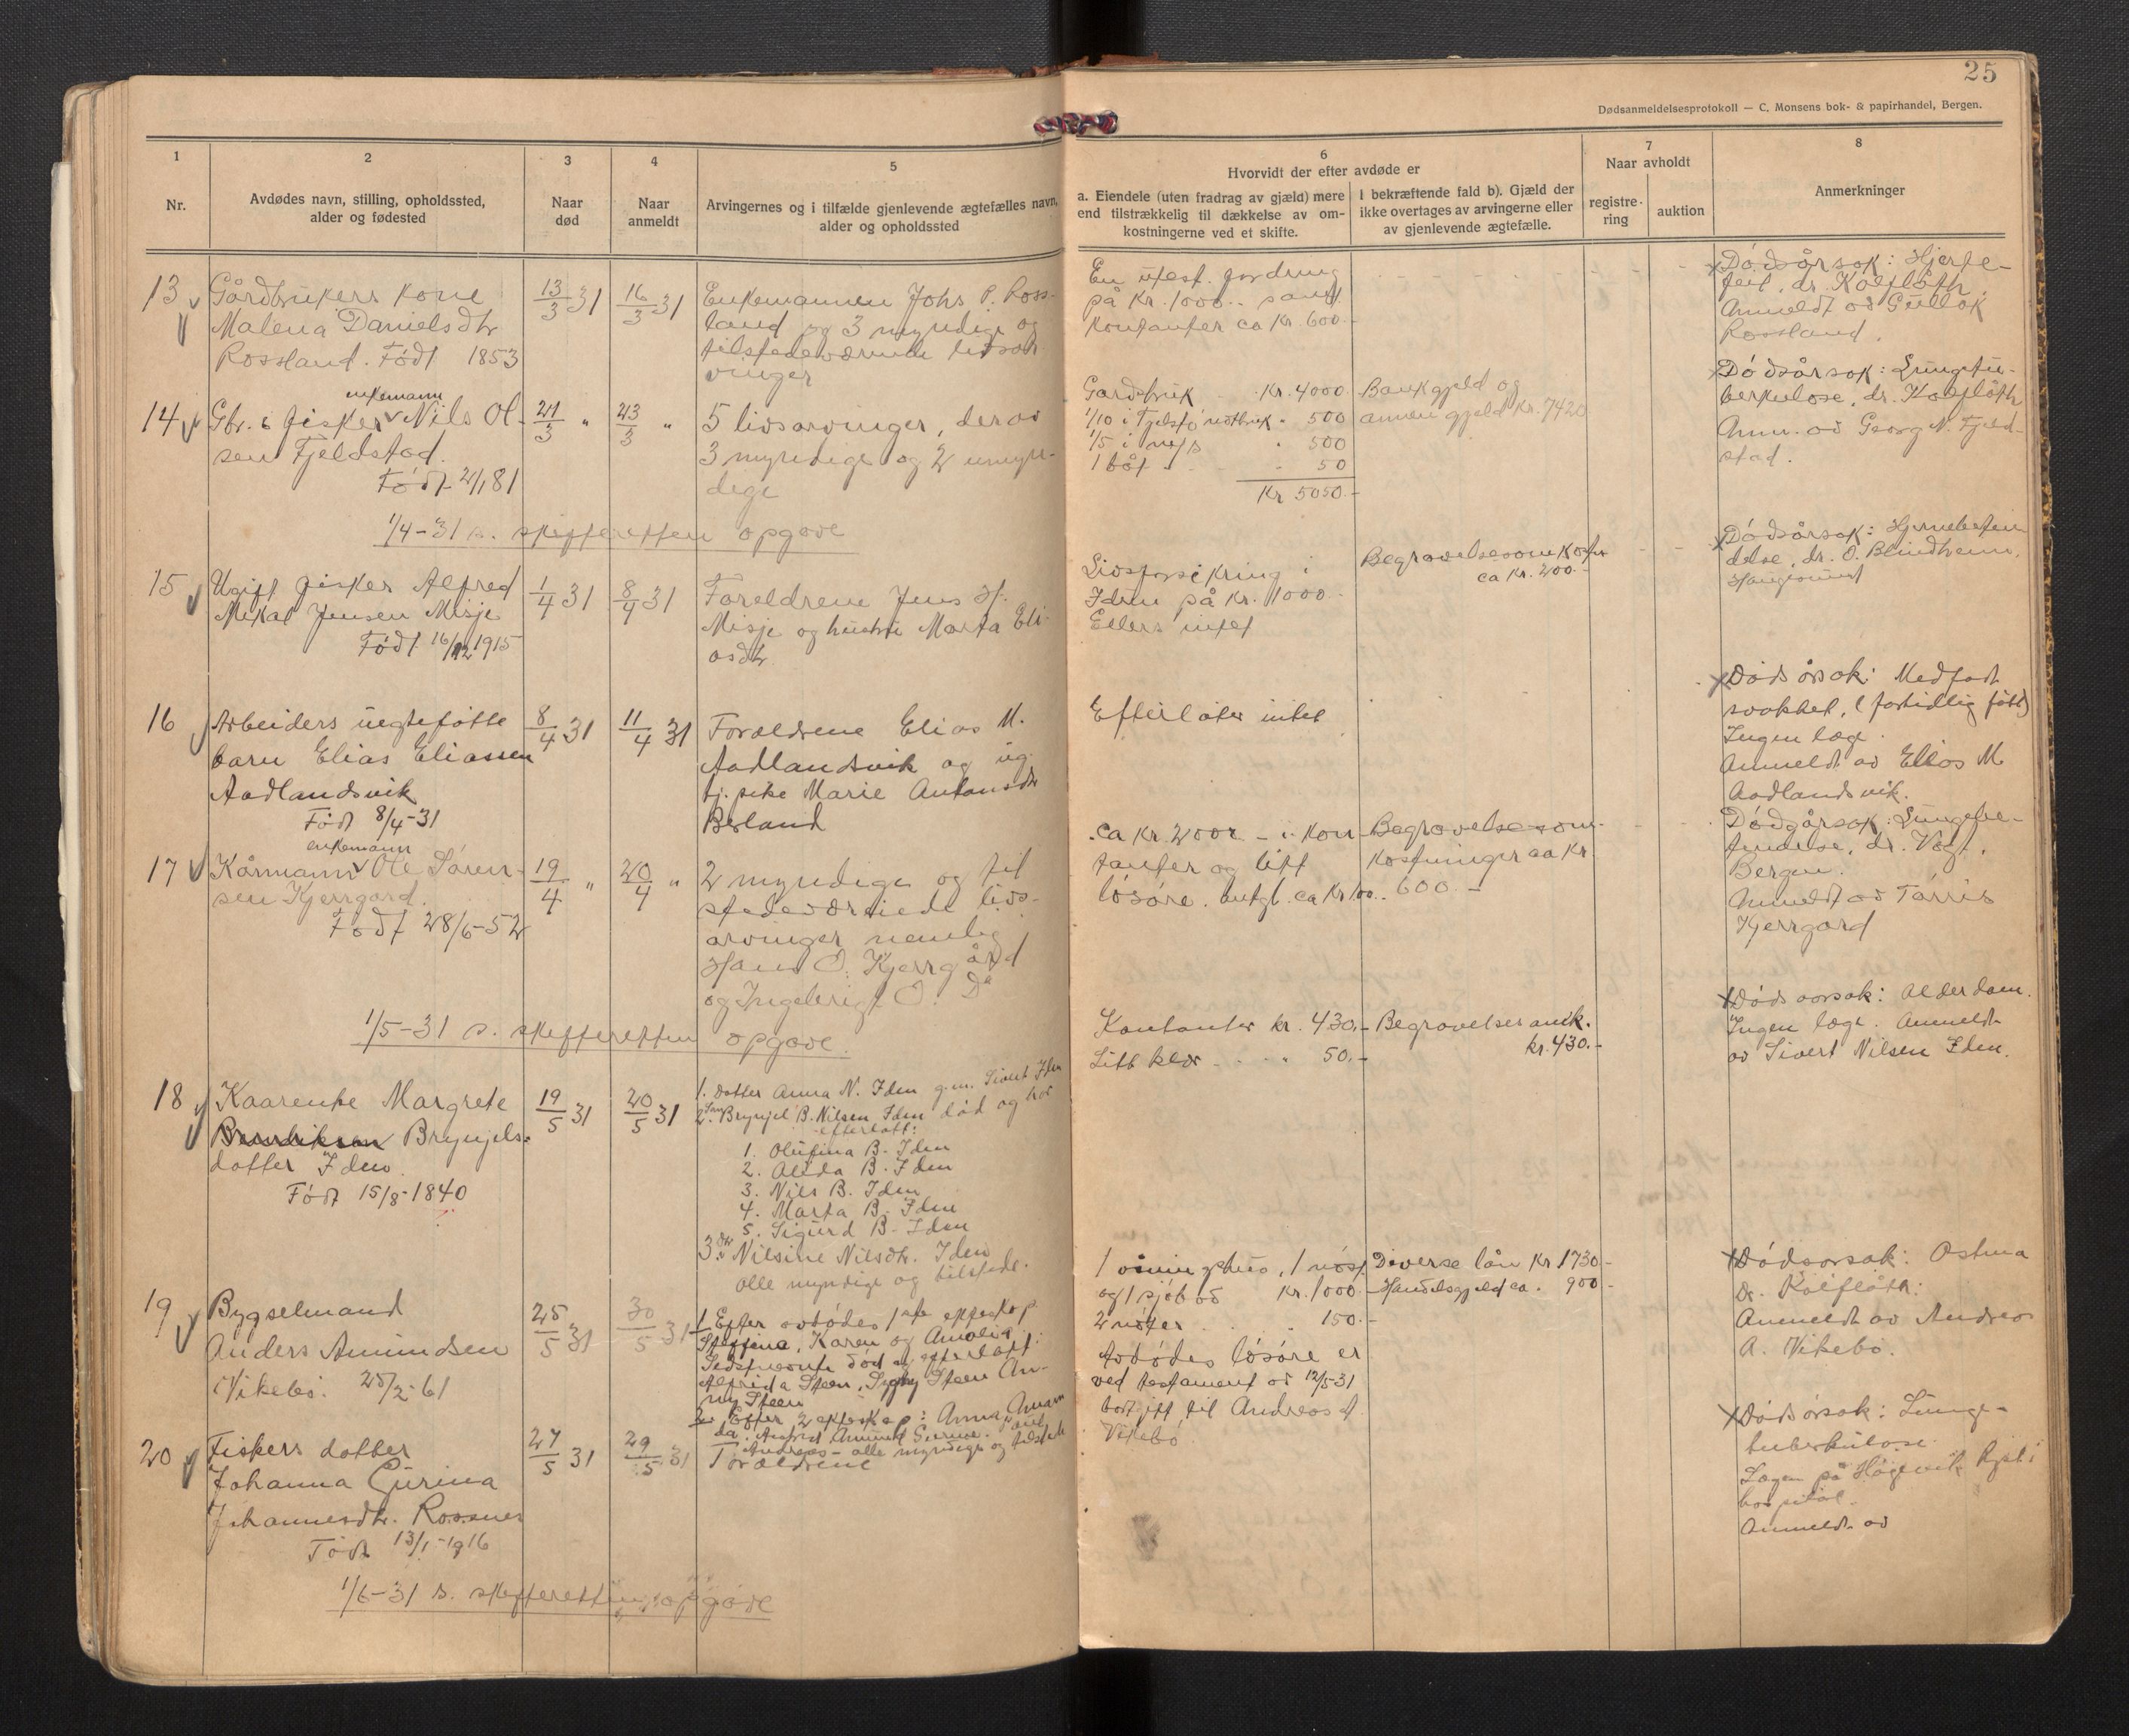 25
Dødsanmeldelsesprotokoll — C. Monsens bok- & papirhandel, Bergen.
1
Nr.
2
Avdødes navn, stilling, opholdssted,
alder og fødested
3
Naar
død
4
Naar
anmeldt
5
Arvingernes og i tilfælde gjenlevende ægtefælles navn,
alder og opholdssted
6
Hvorvidt der efter avdøde er
a. Eiendele (uten fradrag av gjæld) mere
end tilstrækkelig til dækkelse av om-
kostningerne ved et skifte.
I bekræftende fald b). Gjæld der
ikke overtages av arvingerne eller
av gjenlevende ægtefælle.
7
Naar avholdt
registre-
ring
auktion
8
Anmerkninger
13
Gårdbrukers kone
Malena Danielsdtr
Rossland. Født 1853
13/3 31
16/3 31
Enkemannen Johs P. Ross-
land og 3 myndige og
tilstedeværende livsar
vinger
En utest. fordring
på kr. 1000.. samt
kontanter ca kr. 600.-
Dødsårsak: Hjerte-
feil, dr. Kolflåth.
Anmeldt av
Rossland.
14
enkemann
Gbr. & fisker Nils Ol-
sen Fjeldstad.
Født 2/1 81
21/3 "
23/3 "
5 livsarvinger, derav
3 myndige og 2 umyn-
dige
Gardsbruk kr. 4000.
1/10 i notbruk " 500
1/5 i " 500
1 båt " 50
Kr 5050.-
Bankgjeld og
annen gjeld kr. 7420
Dødsårsak: Lungetu-
berkulose, dr. Kolflåth
Anm. av Georg N. Fjeld-
stad.
1/4-31 s. skifteretten opgave
15
Ugift fisker Alfred
Mikal Jensen Misje
Født 16/12 1915
1/4 31
8/4 31
Foreldrene Jens H.
Misje og hustru Marta Eli-
asdtr
Livsforsikring i
Idun på kr. 1000.-
Ellers intet
Begravelsesomkostn
ca kr. 200.-
Dødsårsak: Hjernebeten
delse, dr. O. Blindheim,
Haugesund
16
Arbeiders uegtefødte
barn Elias Eliassen
Aadlandsvik
Født 8/4-31
8/4 31
11/4 31
Forældrene Elias M.
Aadlandsvik og ug.
tj. pike Marie Antonsdtr
Berland
Efterlater intet
Dødsårsak: Medfødt
svakhet, (fortidlig født)
Ingen læge.
Anmeldt av Elias M
Aadlandsvik.
17
enkemann
Kårmann Ole Søren-
sen Kjerrgard.
Født 28/6-52
19/4 "
20/4 "
2 myndige og til
stedeværende livs-
arvinger nemlig
Hans O. Kjerrgård
og Ingebrigt O. Do
ca kr. 2000 - i kon
tanter og litt
løsøre. antgl. ca kr 100..
Begravelsesom-
kostninger ca kr
600.-
Dødsårsak: Lungebe-
tendelse, dr. Vogt,
Bergen.
Anmeldt av Tørris
Kjerrgard
1/5-31 s. skifteretten opgave.
18
Kaarenke Margrete
Brynjels-
datter Iden.
Født 15/8-1840
19/5 31
20/5 31
1. Datter Anna N. Iden g.m. Sivert Iden
2. Søn Brynjel B. Nilsen Iden død og har
efterlatt:
1. Olufina B. Iden
2. Alida B. Iden
3. Nils B. Iden
4. Marta B. Iden
5. Sigurd B. Iden
3. dtr Nilsine Nilsdtr. Iden
Alle myndige og tilstede.
Kontanter kr. 430.-
Litt klær " 50.-
Begravelses omk.
kr. 430.-
Dødsaarsak: Alderdom.
Ingen læge. Anmeldt
av Sivert Nilsen Iden.
19
Bygselmand
Anders Amundsen
Vikebø. 25/2-61
25/5 31
30/5 31
1 Efter avdødes 1ste ekteskap
Steffina, Karen og Amalia
død og efterlatt:
Alfrida Steen, Steen An-
ny Steen
2. Efter 2 ekteskap: Anna, Aman
da, Amund
Andreas - alle myndige og tilstede
1 våningshus, 1 nøst
og 1 sjøbod kr. 1000.-
2 nøter 150.-
Avdødes løsøre er
ved testament av 12/5-31
bort gitt til Andreas A.
Vikebø
Diverse lån kr 1730.-
Handelsgjeld ca. 900.-
Dødsårsak: Astma
Dr. Kolflåth.
Anmeldt av Andreas
A. Vikebø.
20
Fiskers datter
Johanna Gurina
Johannesdtr. Rossnes
Født 13/1-1916
27/5 31
29/5 31
Forældrene
Dødsårsak: Lunge-
tuberkulose.
Lægen på
hospital.
Anmeldt av
1/6-31 s. skifterettens opgave